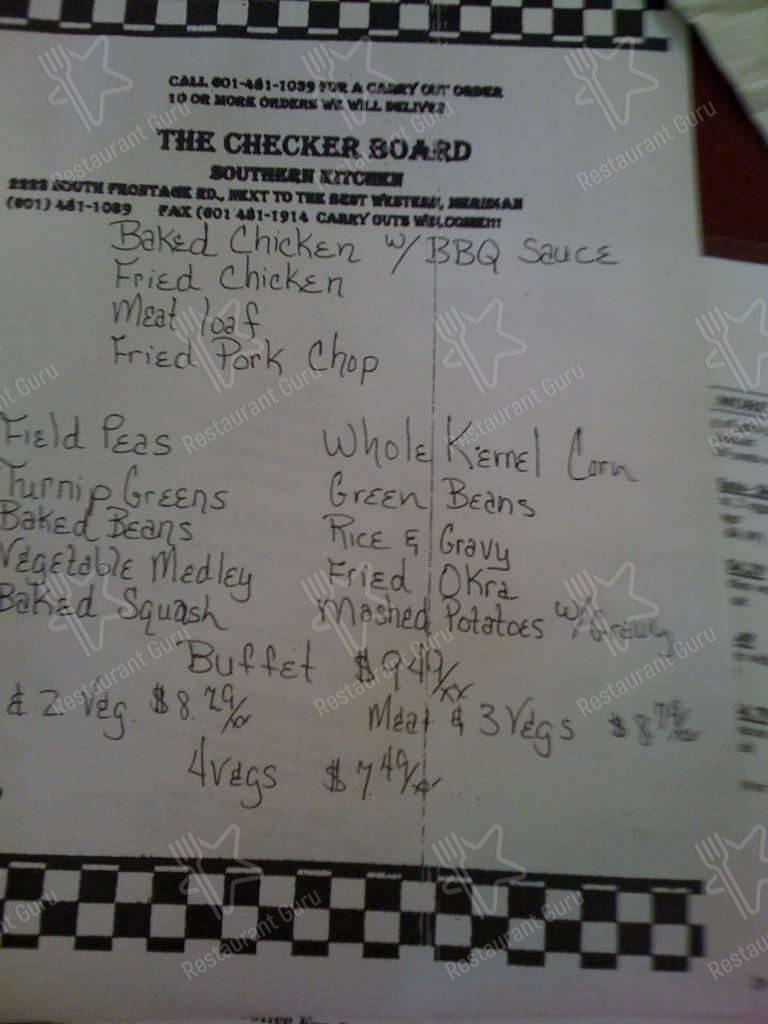 CALL 601-481-1089 FOR A CARRY OUT ORDER
10 OR MORE ORDERS WE WILL DELIVER
THE CHECKER BOARD
SOUTHERN KITCHEN
2222 SOUTH FRONTAGE RD., NEXT TO THE BEST WESTERN, MERIDIAN
(601) 481-1089 FAX (601 481-1914 CARRY OUTS WELCOME!!!
Baked Chicken w/ BBQ Sauce
Fried Chicken
Meat loaf
Fried Pork Chop
Field Peas Whole Kernel Corn
Turnip Greens Green Beans
Baked Beans Rice & Gravy
Vegetable Medley Fried Okra
Baked Squash Mashed Potatoes w/ Gravy
Buffet $9.49/xx
& 2 Veg. $8.29/xx Meat & 3 Vegs $8.
4 Vegs $7.49/xx
Restaurant Guru